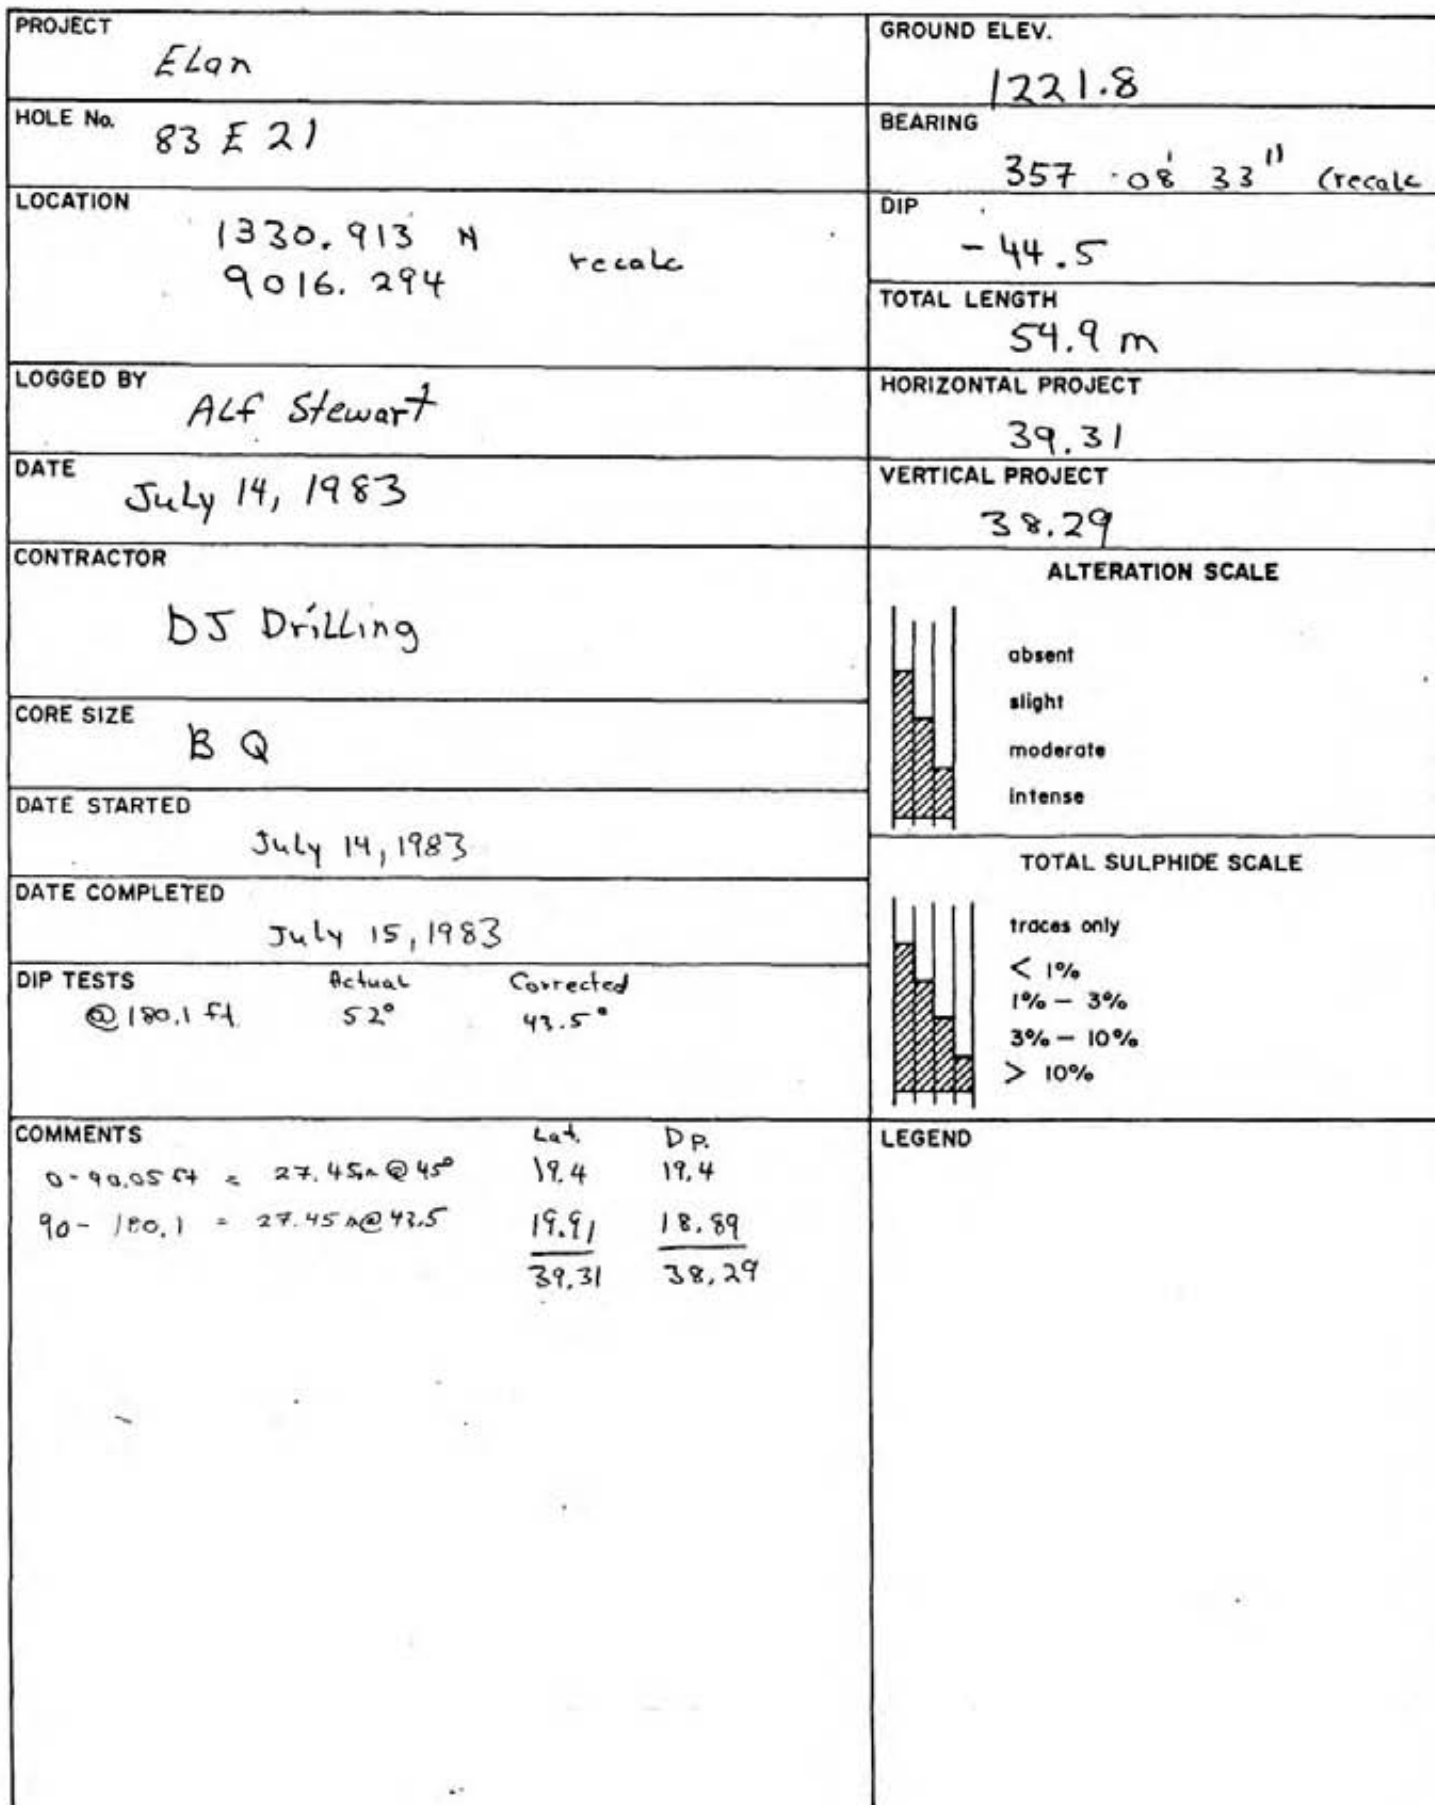 PROJECT
ELan
HOLE No.
83 E 21
LOCATION
1330.913 N
9016.294
recalc
LOGGED BY
ALf Stewart
DATE
July 14, 1983
CONTRACTOR
DJ DriLLing
CORE SIZE
B Q
DATE STARTED
July 14, 1983
DATE COMPLETED
July 15, 1983
DIP TESTS Actual Corrected
@ 180.1 ft. 52° 43.5°
COMMENTS Lat. Dp.
0-90.05 ft = 27.45m @ 45° 19.4 19.4
90- 180.1 = 27.45 m@ 43.5 19.91 18.89
39.31 38.29
GROUND ELEV.
1221.8
BEARING
357 · 08' 33" (recalc
DIP
- 44.5
TOTAL LENGTH
54.9 m
HORIZONTAL PROJECT
39.31
VERTICAL PROJECT
38.29
ALTERATION SCALE
absent
slight
moderate
intense
TOTAL SULPHIDE SCALE
traces only
< 1%
1% – 3%
3% – 10%
> 10%
LEGEND